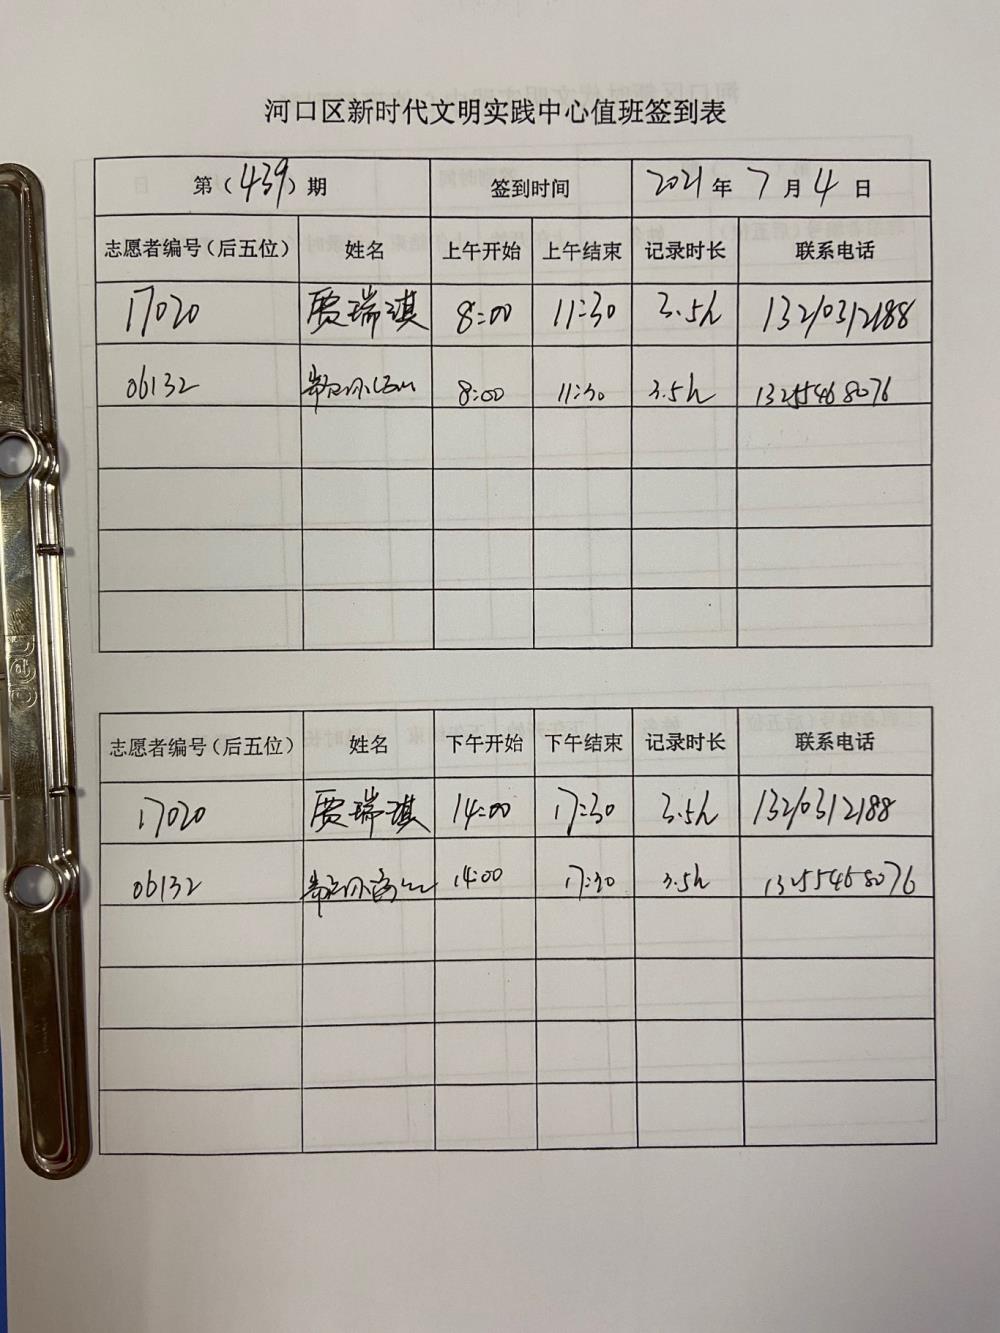 河口区新时代文明实践中心值班签到表
第（439）期 签到时间 2021年7月4日
志愿者编号（后五位） 姓名 上午开始 上午结束 记录时长 联系电话
17020 贾瑞淇 8:00 11:30 3.5h 13210312188
06132 8:00 11:30 3.5h 13255468076
志愿者编号（后五位） 姓名 下午开始 下午结束 记录时长 联系电话
17020 贾瑞淇 14:00 17:30 3.5h 13210312188
06132 14:00 17:30 3.5h 13255468076